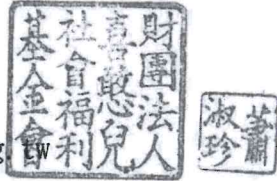 財團法人
喜憨兒
社會福利
基金會
蕭
淑珍
g.tw